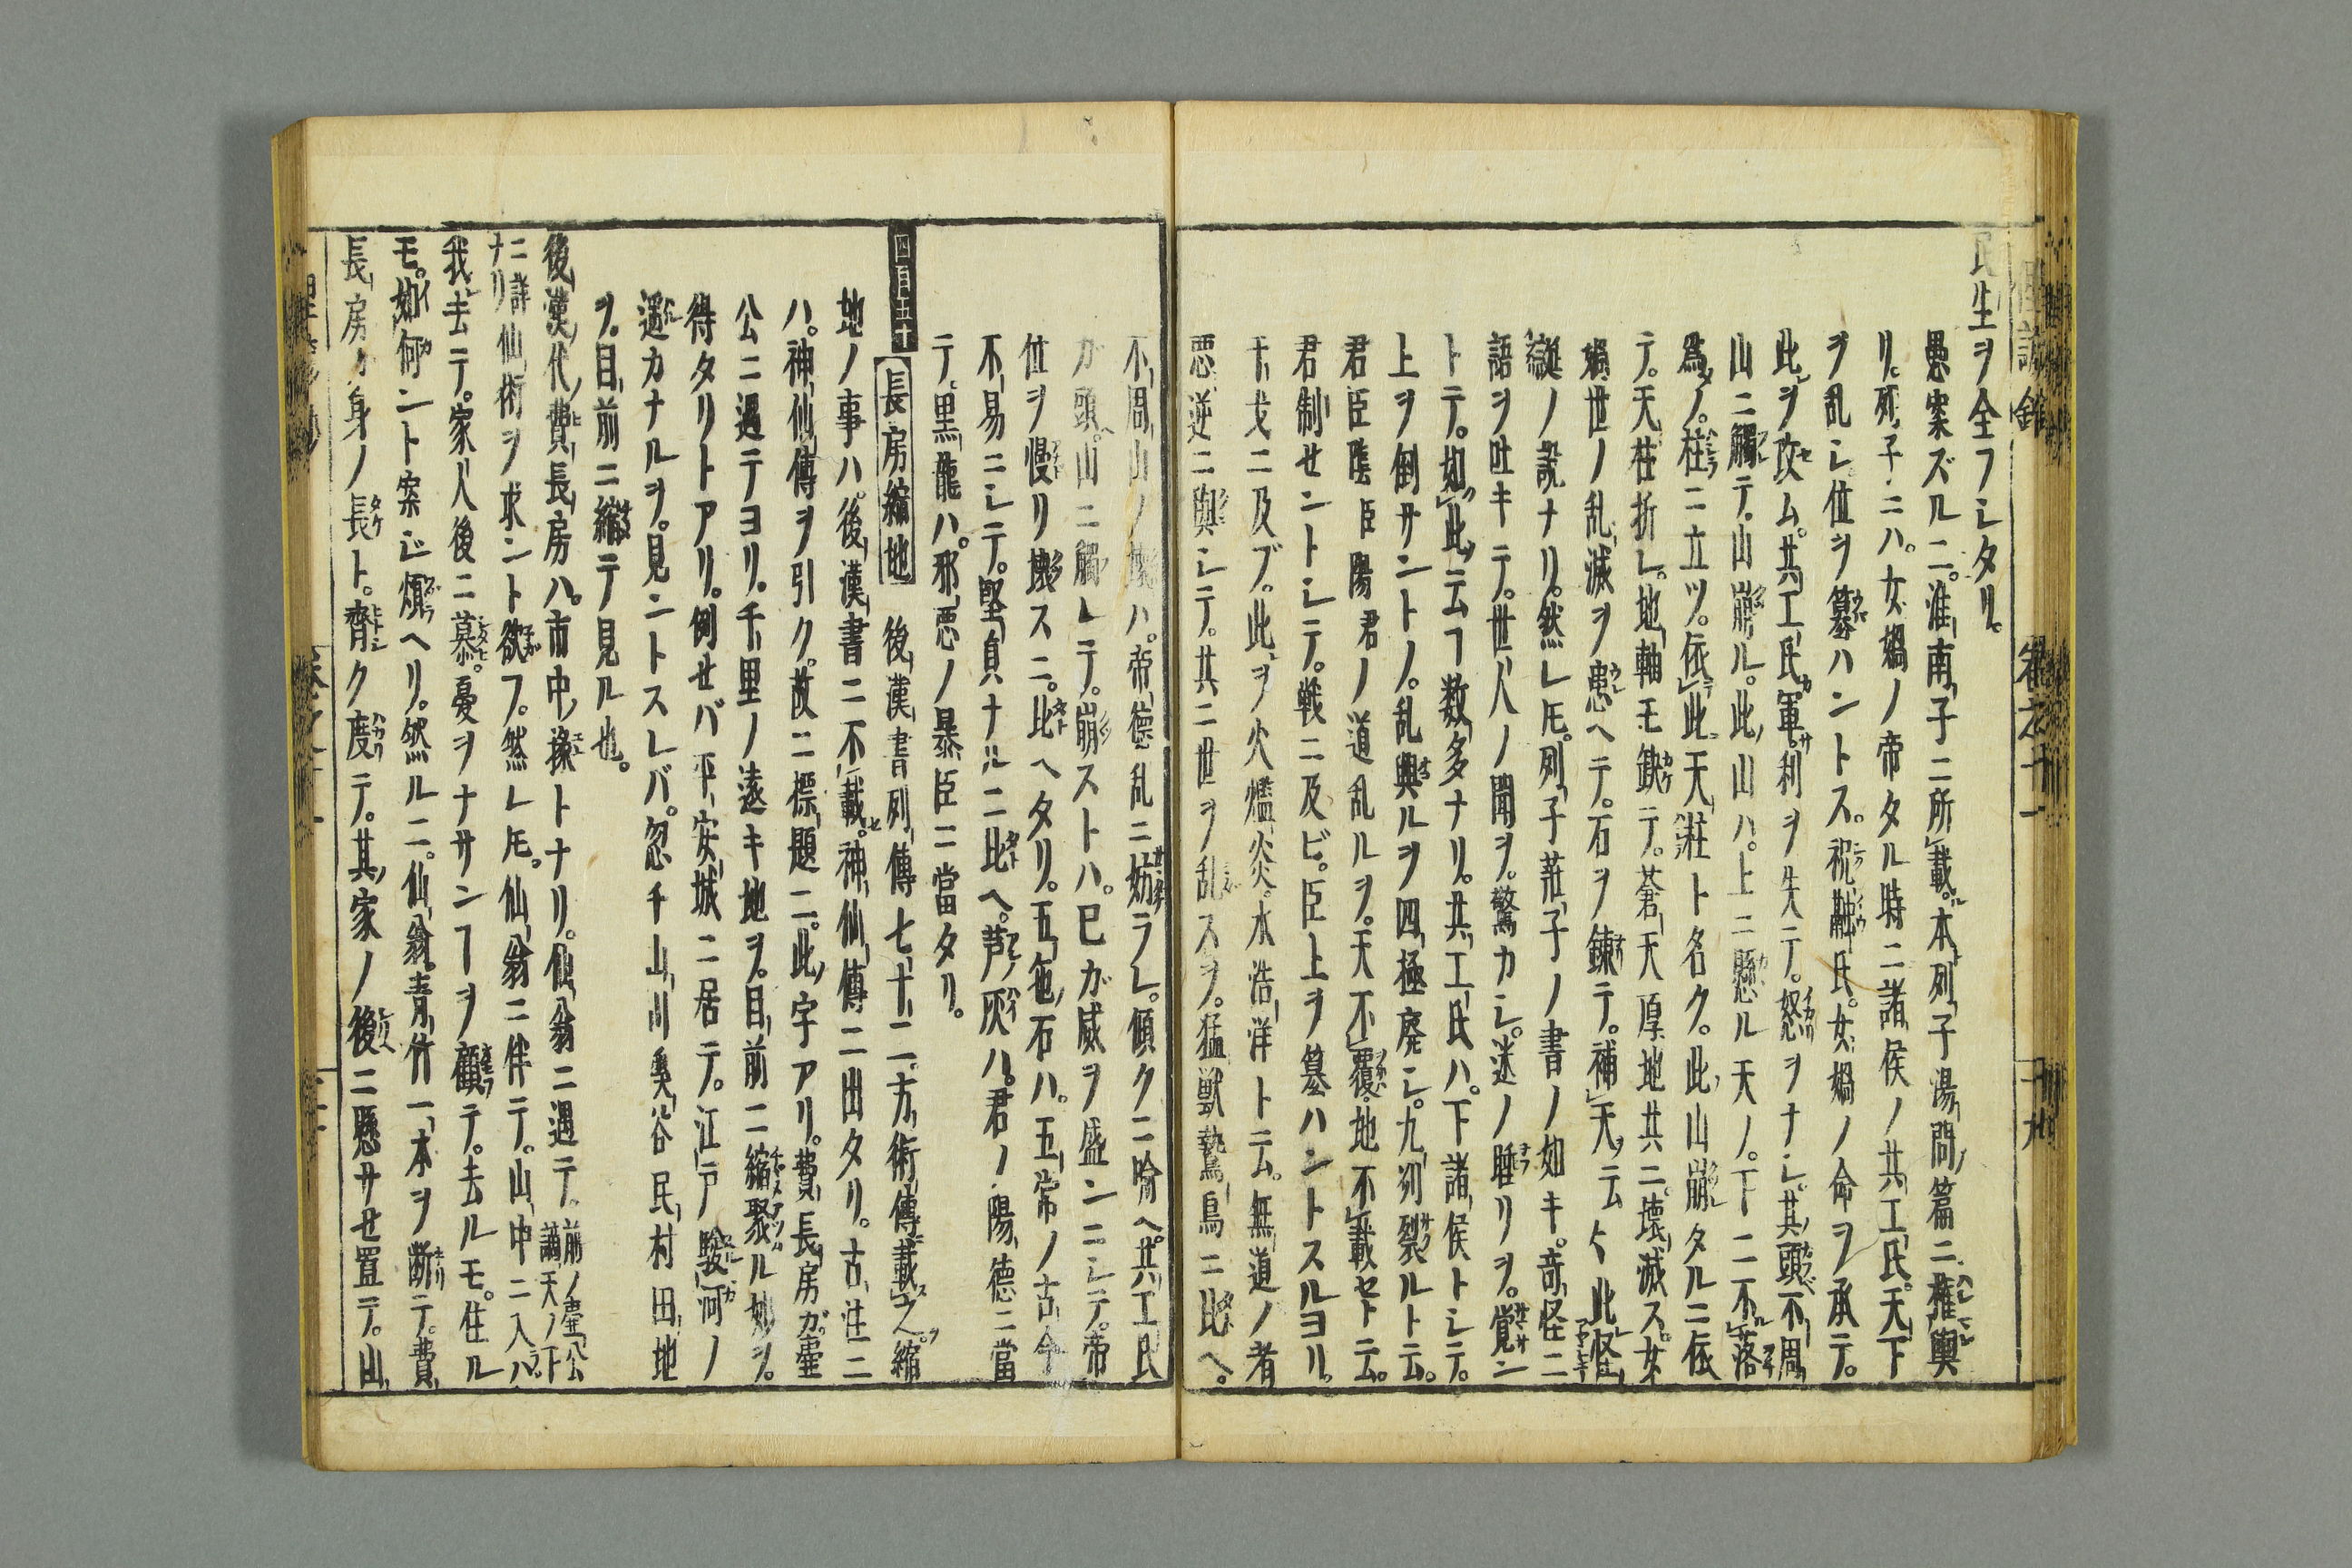 民生ヲ全フシタリ。
愚案ズルニ。淮南子ニ所載。本列子湯問篇ニ権輿
リ。列子ニハ。女媧ノ帝タル時ニ諸侯ノ共工氏。天下
ヲ乱シ位ヲ簒ハントス。祝融氏。女媧ノ命ヲ承テ。
此ヲ攻ム。共工氏軍。利ヲ失テ。怒ヲナシ。其頭不周
山ニ觸テ。山崩ル。此山ハ。上ニ懸ル天ノ。下ニ不落
為ノ。柱ニ立ツ。依此天柱ト名ク。此山崩タルニ依
テ。天柱折レ。地軸モ缺テ。蒼天厚地共ニ壊滅ス。女
媧世ノ乱滅ヲ患ヘテ。石ヲ錬テ。補天ト云ヘリ此怪
誕ノ説ナリ。然レ𪜈。列子莊子ノ書ノ如キ。奇怪ニ
語ヲ吐キテ。世人ノ聞ヲ。驚カシ。迷ノ睡リヲ。覚サン
トテ。如此云ヿ数多ナリ。共工氏ハ。下諸侯トシテ。
上ヲ倒サントノ。乱興ルヲ四極廃シ。九州裂ルト云。
君臣陰臣陽君ノ道乱ルヲ。天不覆。地不載セト云。
君制セントシテ。戦ニ及ビ。臣上ヲ簒ハントスルヨリ。
干戈ニ及ブ。此ヲ火爁炎。水浩洋ト云。無道ノ者
悪逆ニ與シテ。其ニ世ヲ乱スヲ。猛獣鷙鳥ニ比ヘ。
不周山ノ壊ハ。帝徳乱ニ妨ラレ。傾クニ喩ヘ。共工氏
ガ頭。山ニ觸レテ。崩ストハ。已ガ威ヲ盛ンニシテ。帝
位ヲ慢リ壊スニ。比ヘタリ。五色石ハ。五常ノ古今
不易ニシテ。堅貞ナルニ比ヘ。芦灰ハ。君ノ陽徳ニ當
テ。黒龍ハ。邪悪ノ暴臣ニ當タリ。
四百五十 長房縮地 後漢書列傳七十二。方術傳載之縮
地ノ事ハ。後漢書ニ不載。神仙傳ニ出タリ。古注ニ
ハ。神仙傳ヲ引ク。故ニ標題ニ。此字アリ。費長房ガ。壷
公ニ遇テヨリ。千里ノ遠キ地ヲ。目前ニ縮聚ル妙ヲ。
得タリトアリ。倒セバ平安城ニ居テ。江戸駿河ノ
遥カナルヲ。見ントスレバ。忽チ山川奚谷民村田地
ヲ。目前ニ縮テ見ル也。
後漢代費長房ハ。市中掾トナリ。仙翁ニ遇テ。前ノ壷公謫天ノ下
ニ詳ナリ仙術ヲ求ント欲フ。然レ𪜈。仙翁ニ伴テ。山中ニ入ハ。
我去テ。家人後ニ慕。憂ヲナサンヿヲ顧テ。去ルモ。住ル
モ。如何ント案ジ煩ヘリ。然ルニ。仙翁。青竹一本ヲ断テ。費
長房ガ身ノ長ト。齊ク度テ。其家ノ後ニ懸サセ置テ。山